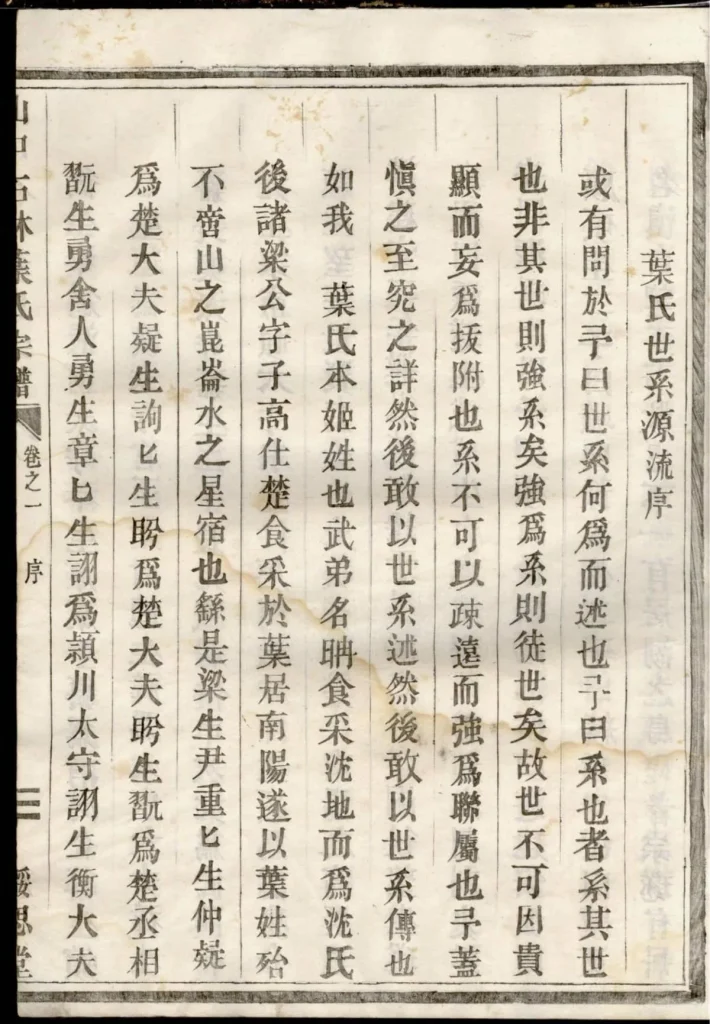 葉氏世系源流序
或有問於予曰世系何爲而述也予曰系也者系其世
也非其世則強系矣強爲系則徒世矣故世不可因貴
顯而妄爲扳附也系不可以疎遠而強爲聯屬也予蓋
愼之至究之詳然後敢以世系述然後敢以世系傳也
如我 葉氏本姬姓也武弟名聃食采沈地而爲沈氏
後諸梁公字子高仕楚食采於葉居南陽遂以葉姓殆
不啻山之崑崙水之星宿也繇是梁生尹重匕生仲凝
爲楚大夫凝生詢匕生盻爲楚大夫盻生翫爲楚丞相
翫生勇舍人勇生章匕生詡爲潁川太守詡生衡大夫
山中石林葉氏宗譜 卷之一 序 二 綏思堂